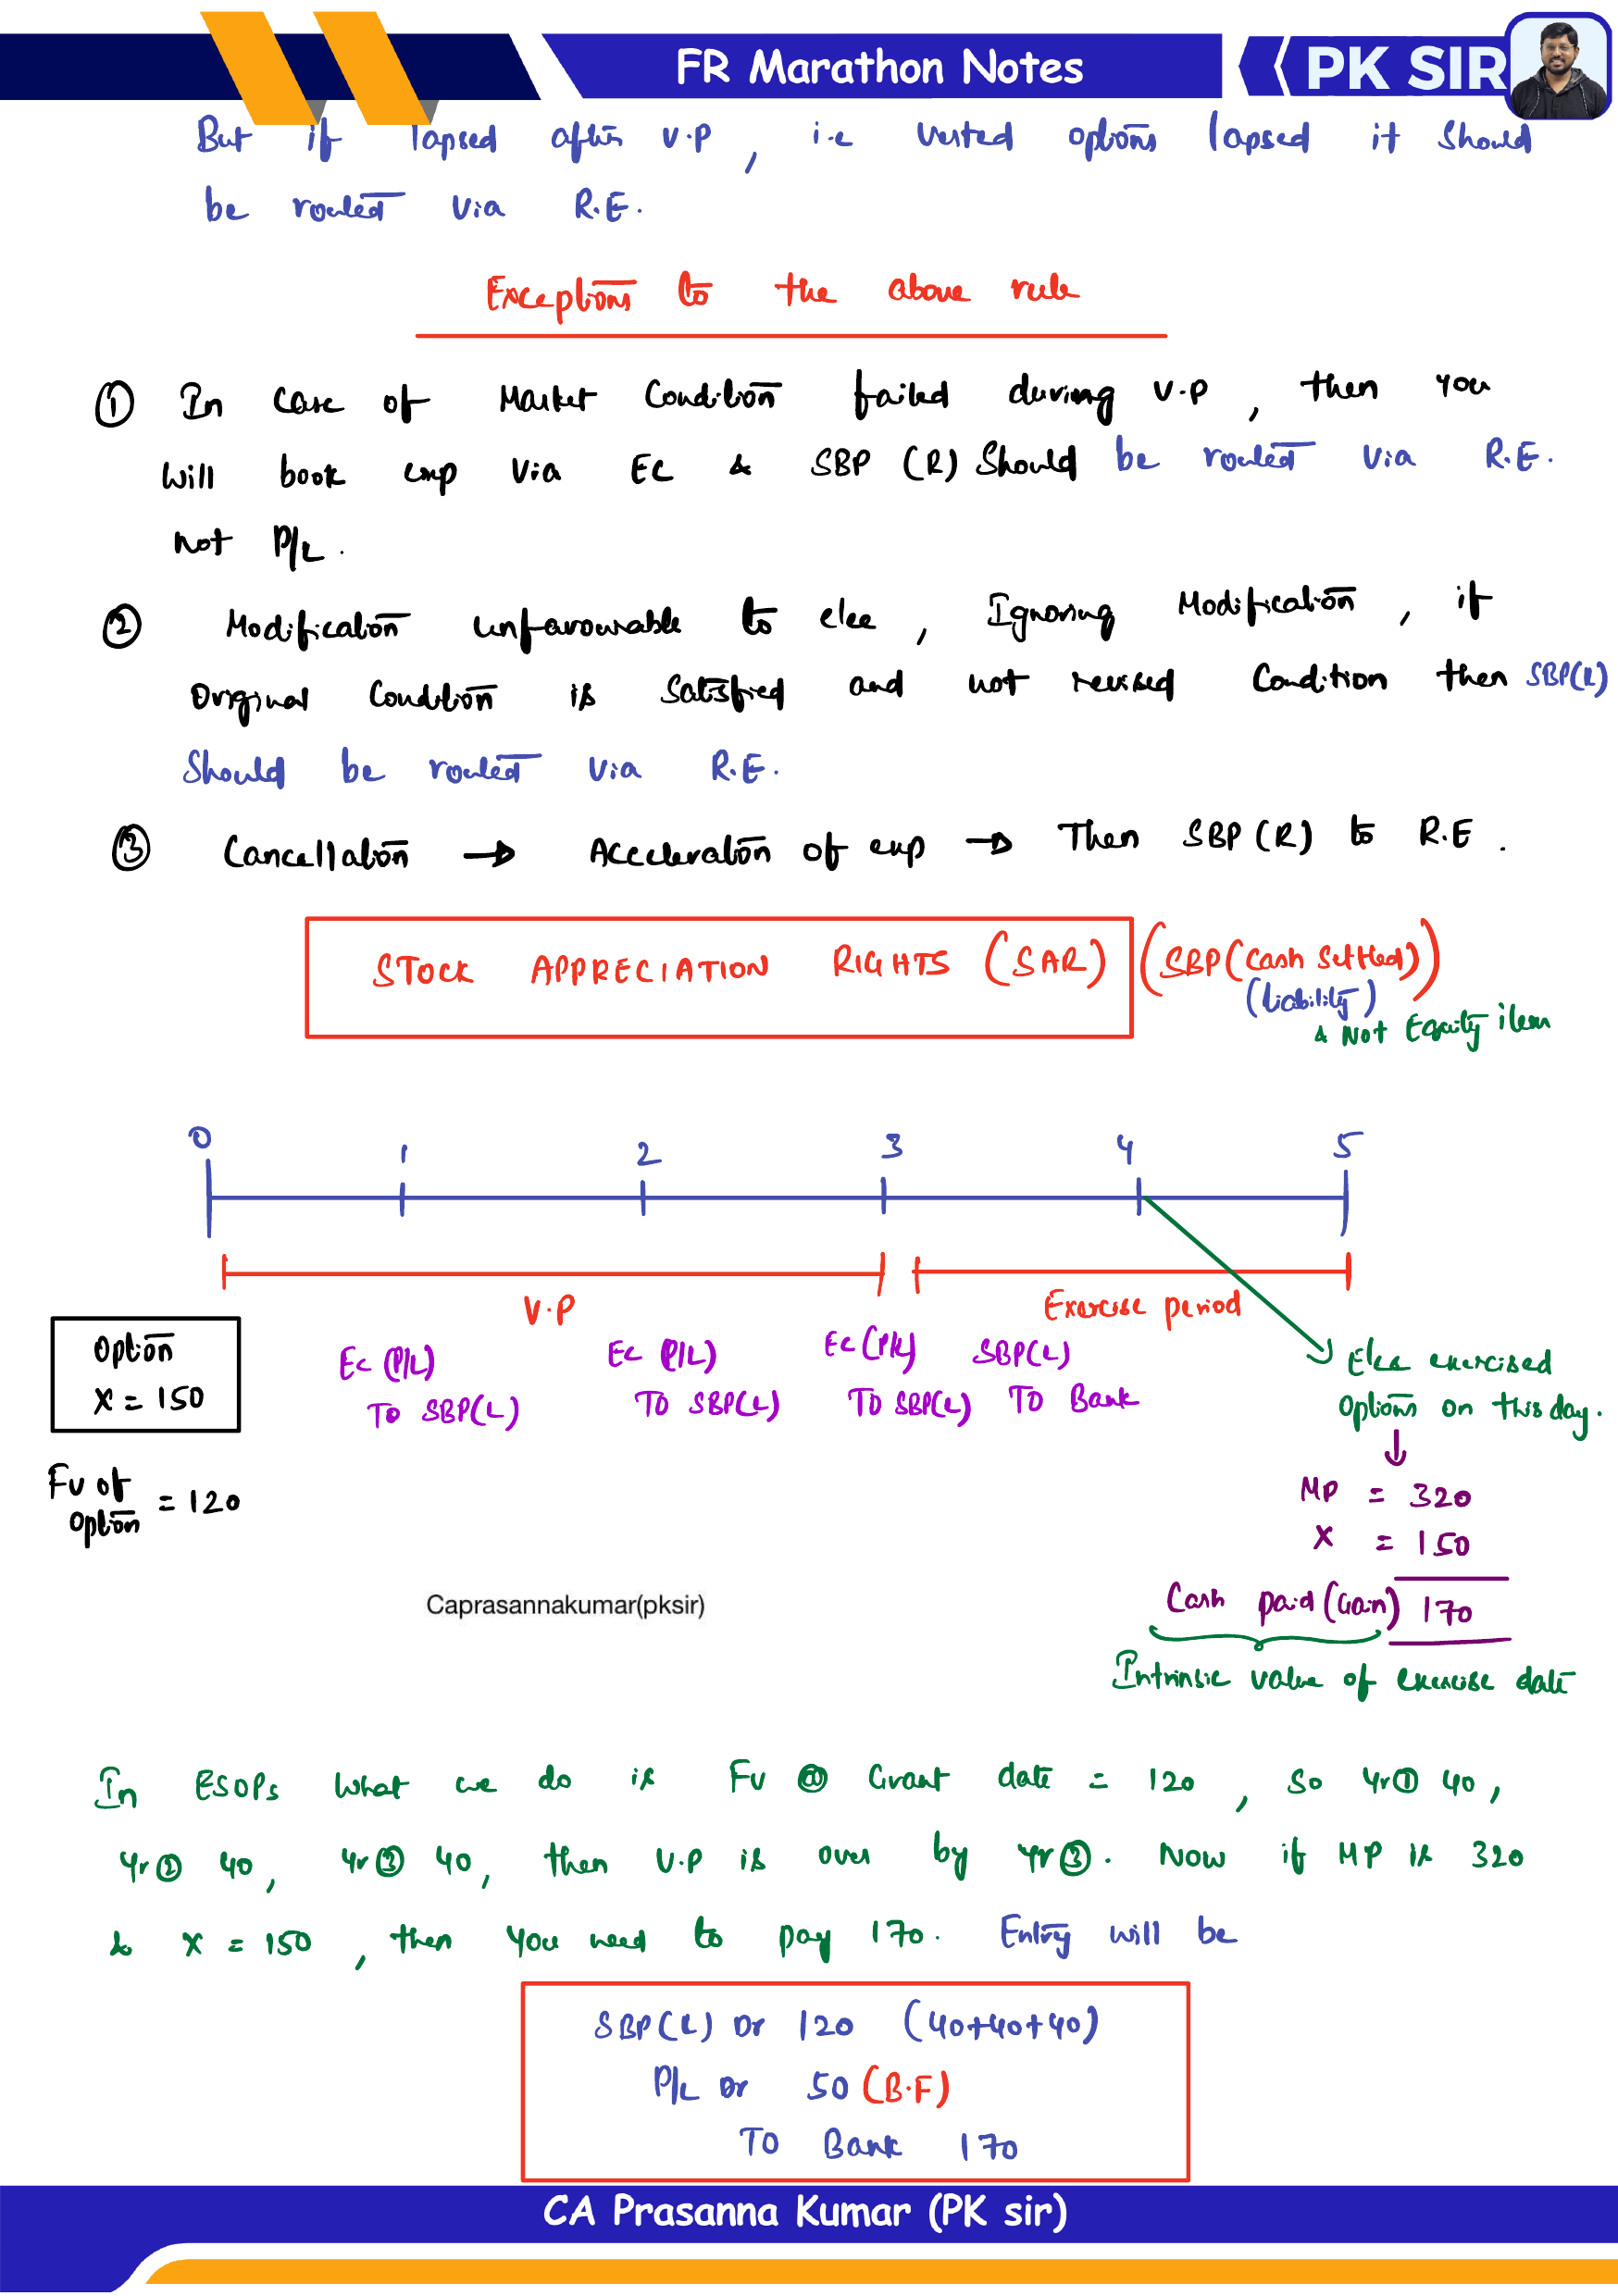 FR Marathon Notes
PK SIR
But if lapsed after V.P, i.e vested options lapsed it should
be routed via R.E.
Exceptions to the above rule
① In case of Market Condition failed during V.P, then you
will book exp via EC & SBP (R) Should be routed via R.E.
not P/L.
② Modification unfavourable to elee, Ignoring Modification, if
Original Condition is Satisfied and not revised Condition then SBP(R)
Should be routed via R.E.
③ Cancellation → Acceleration of exp → Then SBP (R) to R.E.
STOCK APPRECIATION RIGHTS (SAR) (SBP (Cash Settled))
(Liability)
& Not Equity item
0 1 2 3 4 5
V.P Exercise period
Option
X = 150
EC (P/L) EC (P/L) EC (P/L) SBP(L)
To SBP(L) To SBP(L) To SBP(L) To Bank
Elee exercised
options on this day.
↓
FV of
option = 120
MP = 320
X = 150
Cash paid (Gain) 170
Intrinsic value of exercise date
Caprasannakumar(pksir)
In ESOPs what we do is FV @ Grant date = 120, so Yr① 40,
Yr② 40, Yr③ 40, then V.P is over by Yr③. Now if MP is 320
& X = 150, then you need to pay 170. Entry will be
SBP(L) Dr 120 (40+40+40)
P/L Dr 50 (B.F)
To Bank 170
CA Prasanna Kumar (PK sir)